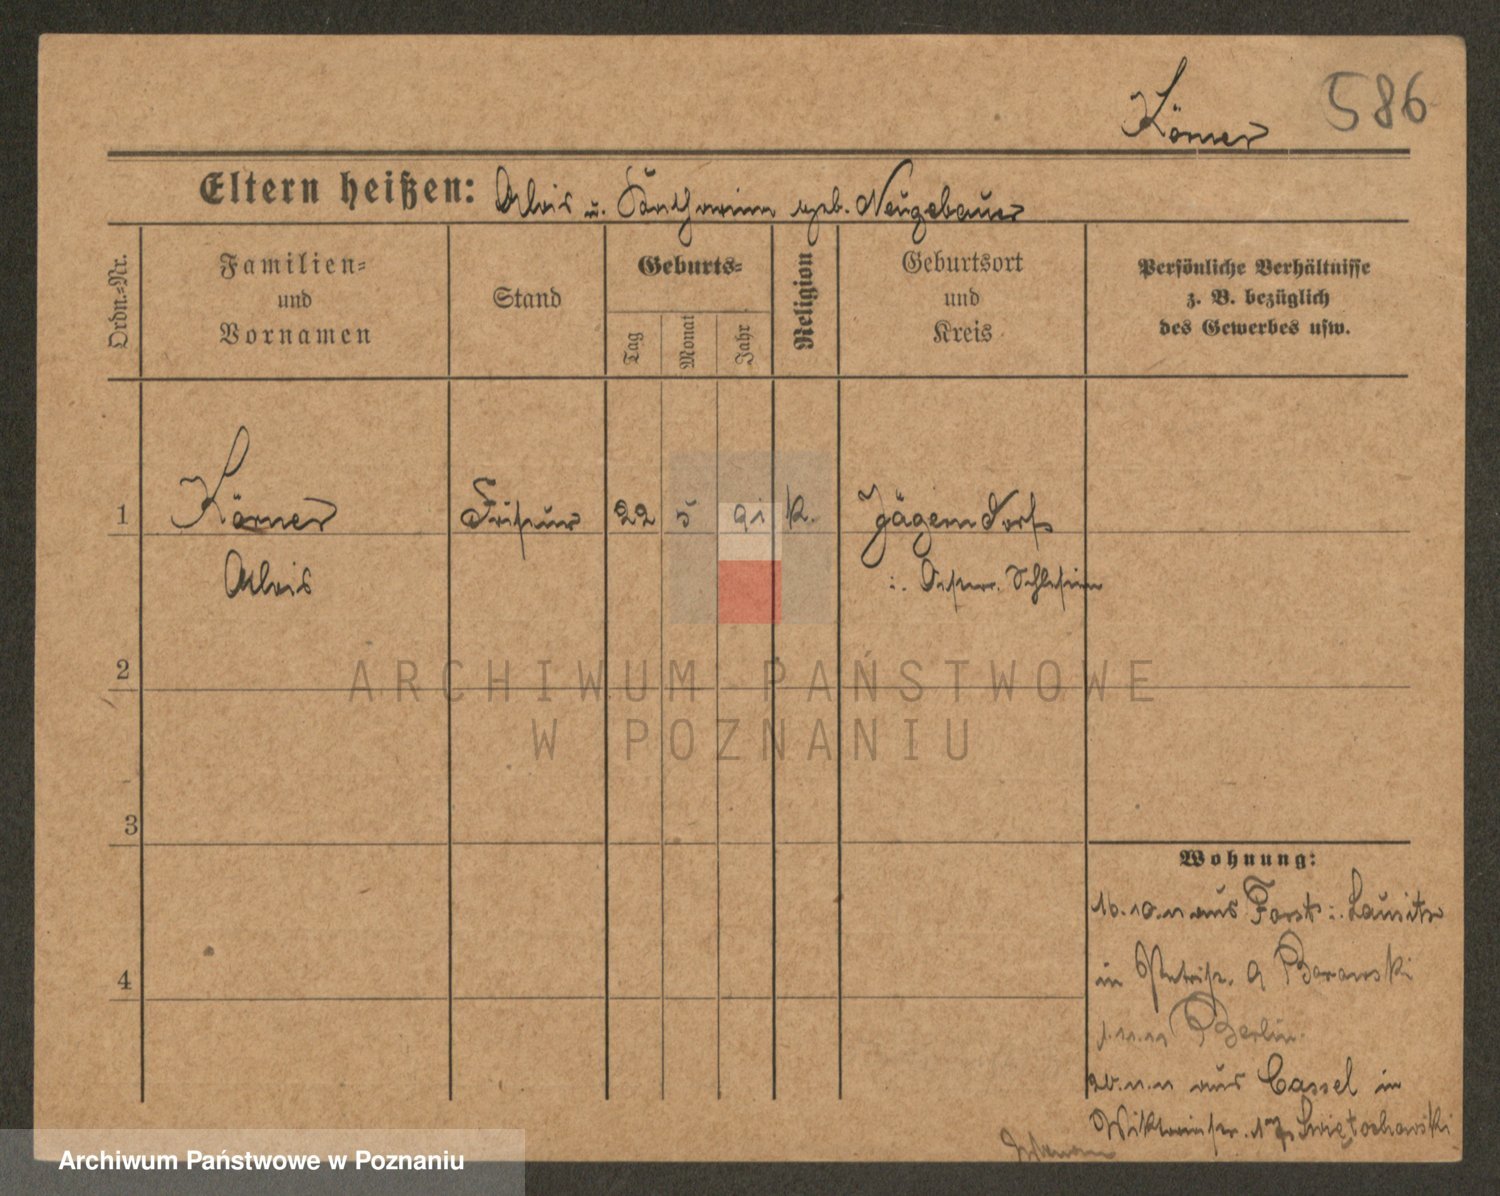 586
Körner
Eltern heißen: Alois u. Katharina geb. Neugebauer
Ordn.-Nr.
Familien-
und
Vornamen
Stand
Geburts-
Tag
Monat
Jahr
Religion
Geburtsort
und
Kreis
Persönliche Verhältnisse
z. B. bezüglich
des Gewerbes usw.
1
Körner Friseur 22 5 91 k. Jägerndorf
Alois i. Oesterr. Schlesien
2
ARCHIWUM PAŃSTWOWE
W POZNANIU
3
Wohnung:
16.10.11 aus Forst i. Lausitz
in Petristr. 9 Borowski
1.11.11 Berlin.
20.11.11 aus Cassel in
4
Viktoriastr. Swiętochowski
Archiwum Państwowe w Poznaniu